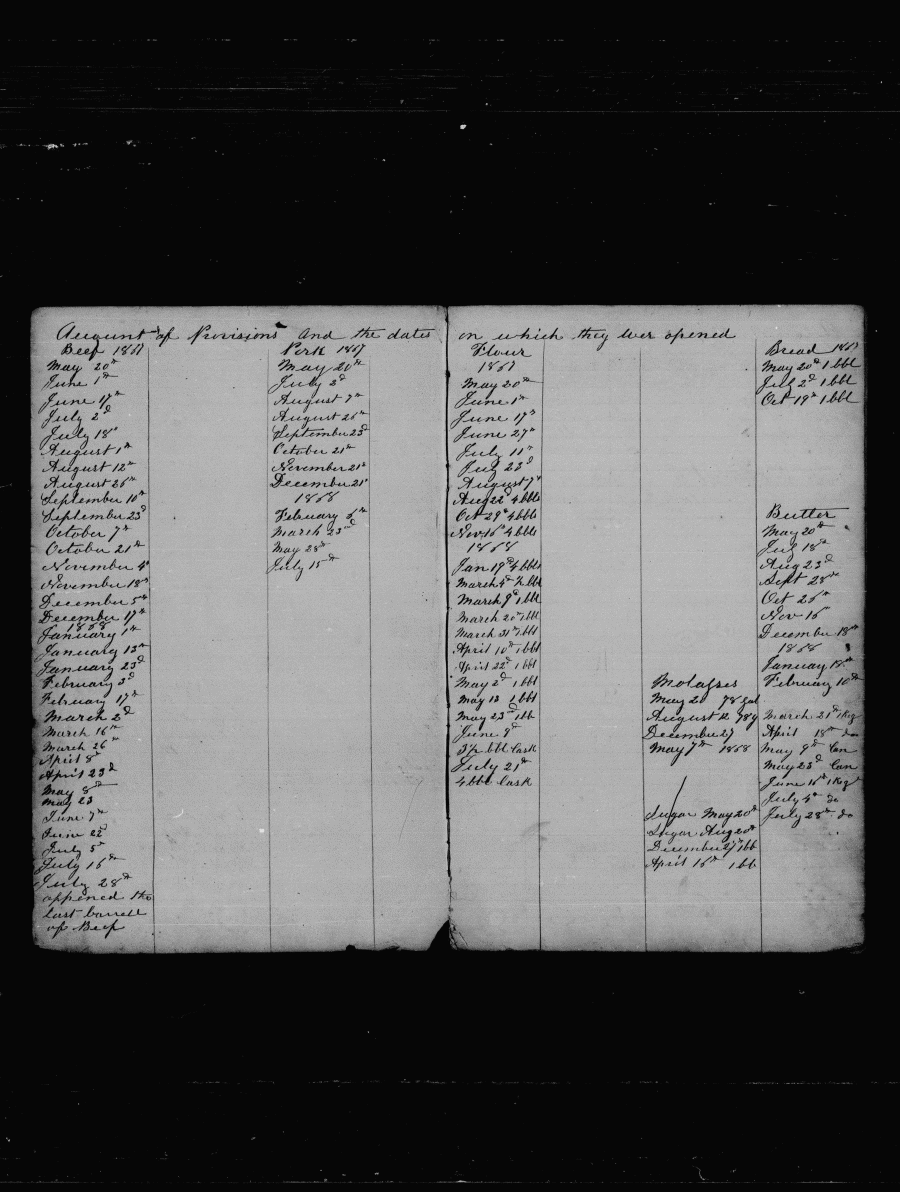 Amount of Provisions and the dates on which they wer opened
Beef 1867
May 20th
June 1th
June 17th
July 2d
July 18th
August 1th
August 12th
August 26th
September 10th
September 23d
October 7th
October 21th
November 4th
November 18th
December 5th
December 17th
1868
January 1th
January 13th
January 23d
February 3d
February 17th
March 2d
March 16th
March 26th
April 8th
April 23d
May 8th
May 23
June 7th
June 22d
July 5th
July 16th
July 28th
oppined the
last barrell
of Beef
Pork 1867
May 20th
July 2d
August 7th
August 26th
September 23d
October 21th
November 21th
December 21th
1868
February 6th
March 23nd
May 28th
July 15th
Flour
1867
May 20th
June 1th
June 17th
June 27th
July 11th
July 23d
August 7th
Aug 22d 4 bbls
Oct 29th 4 bbls
Nov 16th 4 bbls
1868
Jan 19th 4 bbls
March 4th bbl
March 9th 1 bbl
March 20th 1 bbl
March 31th 1 bbl
April 10th 1 bbl
April 22d 1 bbl
May 2d 1 bbl
May 12 1 bbl
May 23d 1 bb
June 9th
3½ bbl Cask
July 21th
4 bbl Cask
Molasses
May 20 78 gal
August 12 78 g
December 27
May 7th 1868
Sugar May 20th
Sugar Aug 20th
December 27th 1 bb
April 16th 1 bb
Bread 1867
May 20th 1 bbl
July 2d 1 bbl
Oct 19th 1 bbl
Butter
May 20th
July 18th
Aug 23d
Sept 28th
Oct 26th
Nov 16th
December 18th
1868
January 18th
February 10th
March 21th 1 Keg
April 18th do
May 9th Can
May 23d Can
June 16th 1 Keg
July 4th do
July 28th do